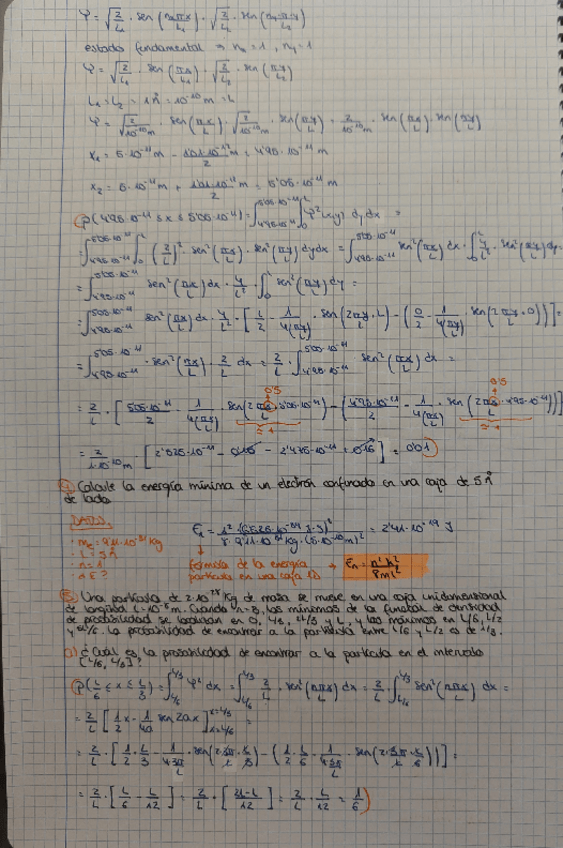 Ψ = √(2/L₁) · sen(nₓπx/L₁) · √(2/L₂) · sen(n_yπy/L₂)
estado fundamental ⇒ nₓ = 1 , n_y = 1
Ψ = √(2/L₁) · sen(πx/L₁) · √(2/L₂) · sen(πy/L₂)
L₁ = L₂ = 1Å = 10⁻¹⁰ m = L
Ψ = √(2/10⁻¹⁰m) · sen(πx/L) · √(2/10⁻¹⁰m) · sen(πy/L) = 2/10⁻¹⁰m · sen(πx/L) · sen(πy/L)
x₁ = 5·10⁻¹¹ m − /2 = 4'95·10⁻¹¹ m
x₂ = 5·10⁻¹¹ m + /2 = 5'05·10⁻¹¹ m
P(4'95·10⁻¹¹ ≤ x ≤ 5'05·10⁻¹¹) = ∫ ∫ Ψ²(x,y) dy dx =
= ∫ ∫ (2/L)² · sen²(πx/L) · sen²(πy/L) dy dx = ∫ sen²(πx/L) dx · ∫ 4/L² · sen²(πy/L) dy =
= ∫ sen²(πx/L) dx · 4/L² · ∫ sen²(πy/L) dy =
= ∫ sen²(πx/L) dx · 4/L² · [L/2 − 1/4(πy/L) · sen(2πy/L · L) − (0/2 − 1/4(πy/L) · sen(2πy/L · 0))] =
= ∫ · sen²(πx/L) · 2/L dx = 2/L · ∫ sen²(πx/L) dx =
= 2/L · [5'05·10⁻¹¹/2 − 1/4(πx/L) · sen(2π · 5'05·10⁻¹¹) − (4'95·10⁻¹¹/2 − 1/4(πx/L) · sen(2π · 4'95·10⁻¹¹))]
= 2/1·10⁻¹⁰m · [2'525·10⁻¹¹ − − 2'475·10⁻¹¹ + ] = 0'01
④ Calcule la energía mínima de un electrón confinado en una caja de 5Å
de lado
DATOS:
· mₑ = 9'11·10⁻³¹ kg
· L = 5Å
· n = 1
· ¿E?
E₁ = 1²·(6'626·10⁻³⁴ J·s)²/8·9'11·10⁻³¹ kg·(5·10⁻¹⁰m)² = 2'41·10⁻¹⁹ J
fórmula de la energía
partícula en una caja 1D
Eₙ = n²h²/8mL²
⑤ Una partícula de 2·10⁻²⁸ Kg de masa se mueve en una caja unidimensional
de longitud L=10⁻⁸ m. Cuando n=3, los mínimos de la función de densidad
de probabilidad se localizan en 0, L/3, 2L/3 y L, y los máximos en L/6, L/2
y 5L/6. La probabilidad de encontrar a la partícula entre L/6 y L/2 es de 1/3.
a) ¿Cuál es la probabilidad de encontrar a la partícula en el intervalo
[L/6, L/3]?
P(L/6 ≤ x ≤ L/3) = ∫ Ψ² dx = ∫ 2/L · sen²(nπx/L) dx = 2/L · ∫ sen²(nπx/L) dx =
= 2/L [1/2 x − 1/4a sen 2ax] x=L/3 x=L/6 =
= 2/L · [1/2 · L/3 − 1/4·3π/L · sen(2·3π/L · L/3) − (1/2 · L/6 − 1/4·3π/L · sen(2·3π/L · L/6))] =
= 2/L · [L/6 − L/12] = 2/L · [2L−L/12] = 2/L · L/12 = 1/6